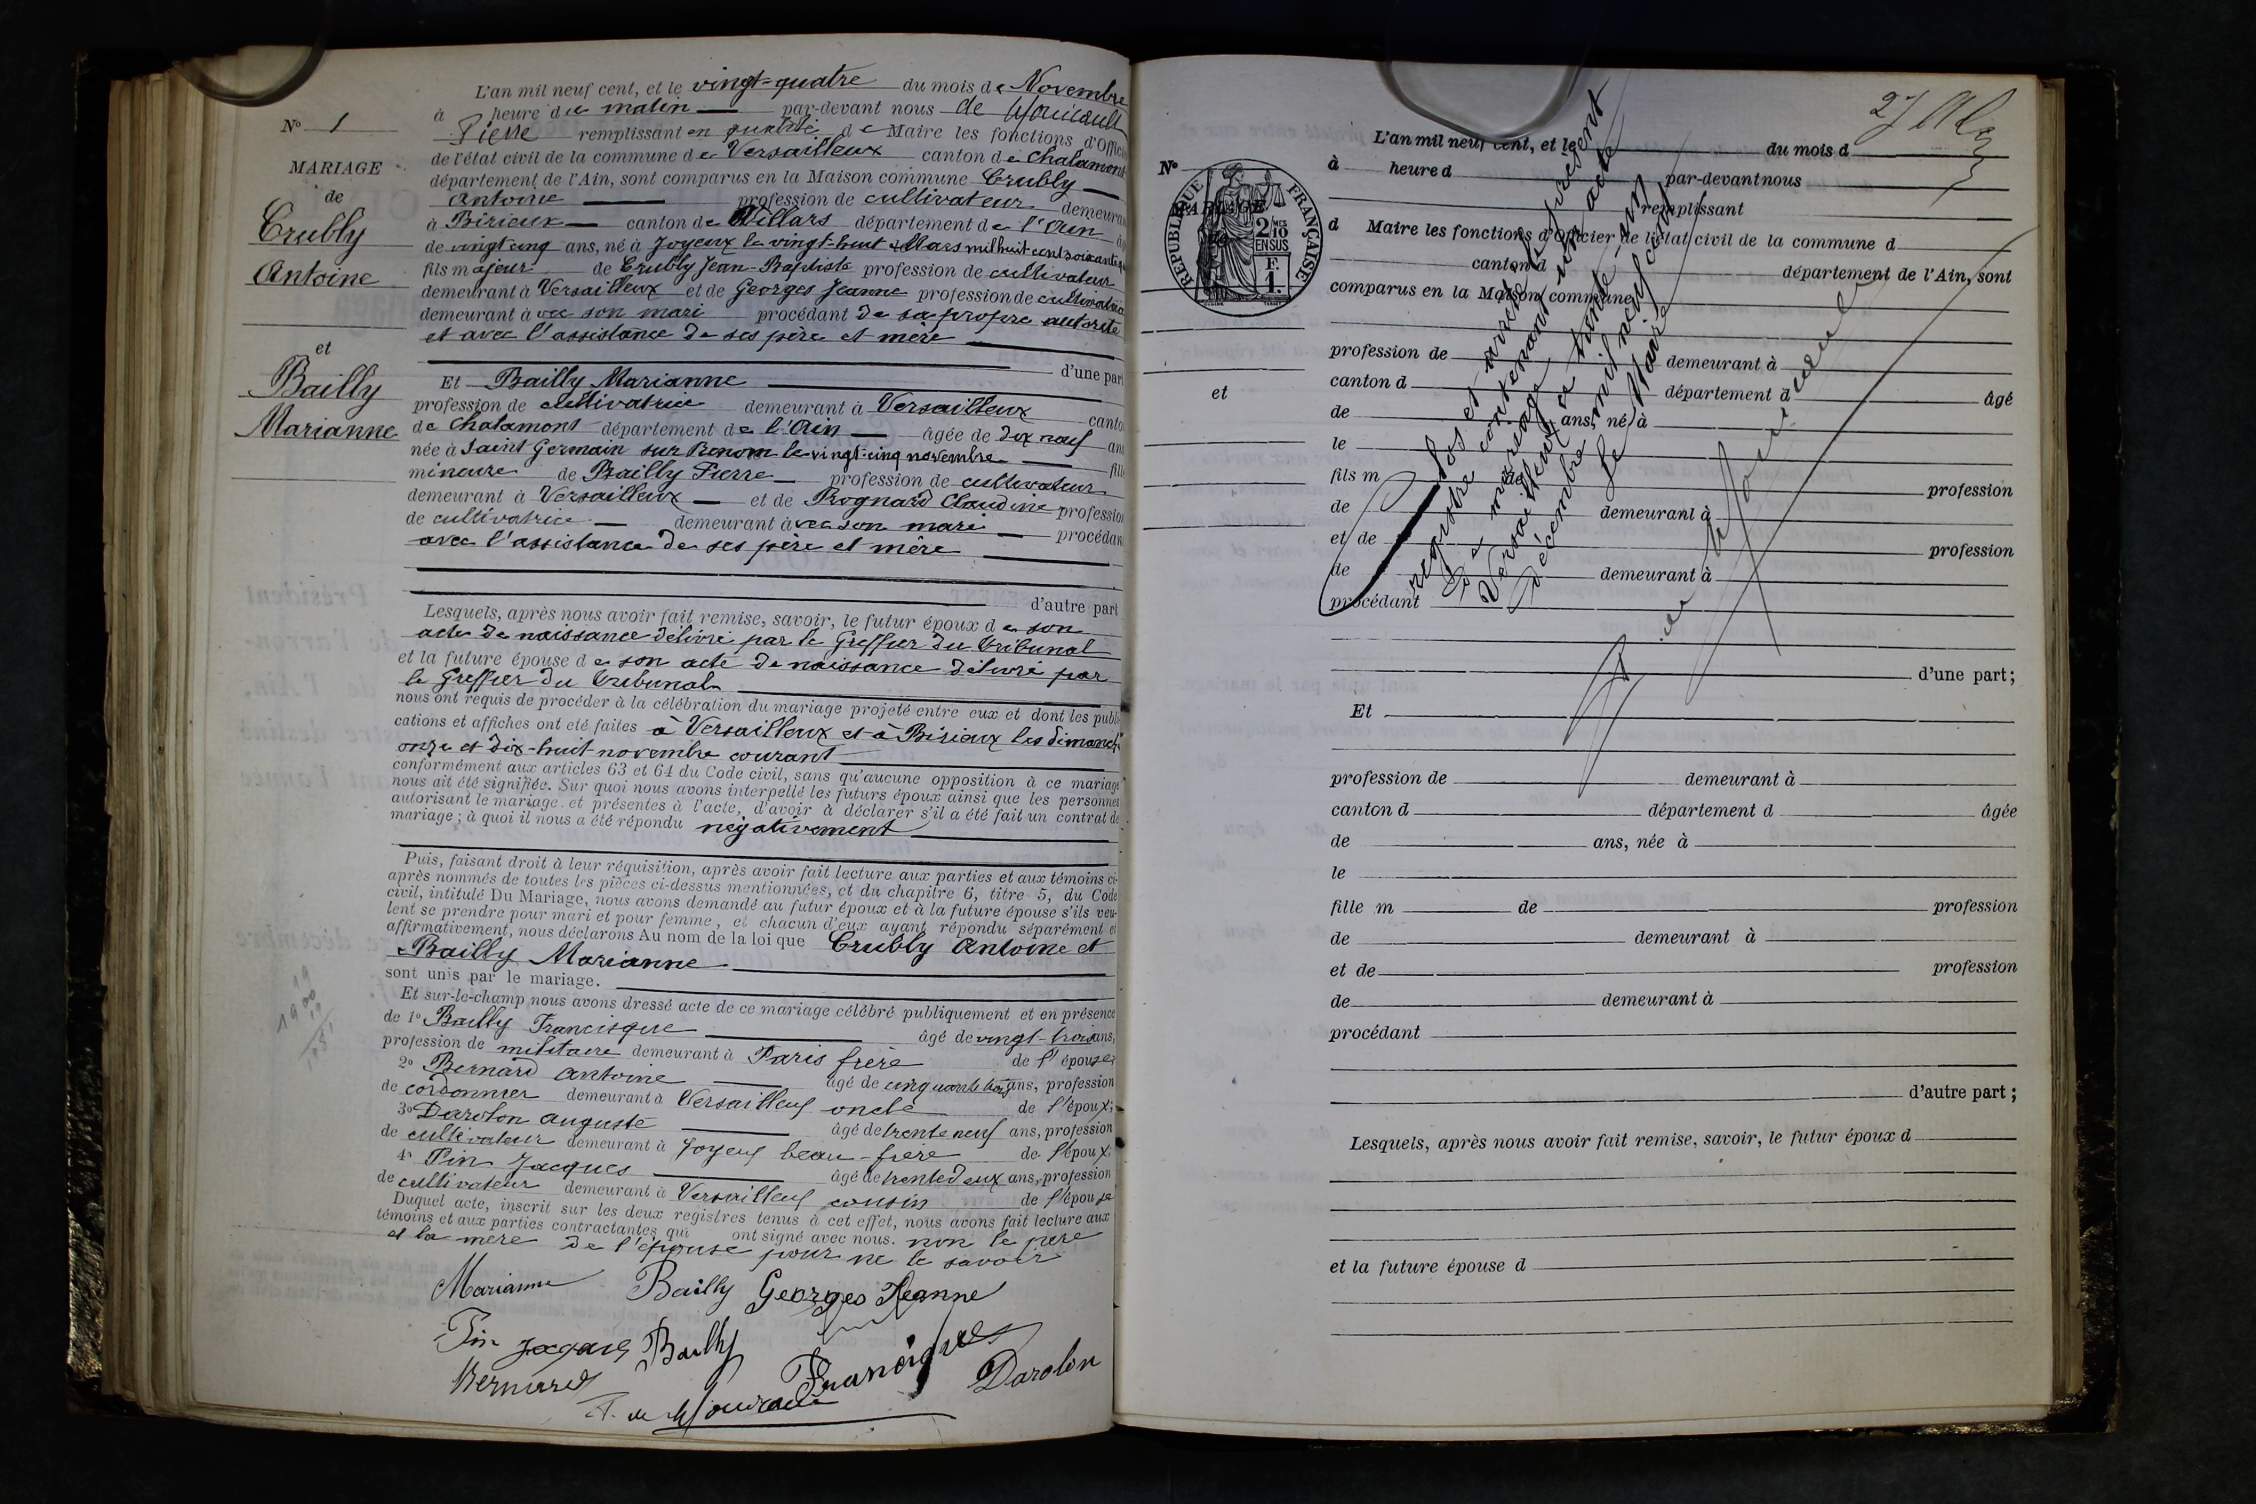 L'an mil neuf cent, et le vingt-quatre du mois de Novembre
à heure du matin par-devant nous de
Pierre remplissant en qualité de Maire les fonctions d'Officier
de l'état civil de la commune de Versailleux canton de Chalamont
département de l'Ain, sont comparus en la Maison commune Crubly
Antoine profession de cultivateur demeurant
à Birieux canton de Villars département de l'Ain
de vingt cinq ans, né à Joyeux le vingt-huit Mars mil huit cent soixante
fils majeur de Crubly Jean-Baptiste profession de cultivateur
demeurant à Versailleux et de Georges Jeanne profession de cultivatrice
demeurant avec son mari procédant de sa propre autorité
et avec l'assistance de ses père et mère
d'une part
Et Bailly Marianne
profession de cultivatrice demeurant à Versailleux canton
de Chalamont département de l'Ain âgée de dix neuf ans
née à Saint Germain sur Renom le vingt-cinq novembre fille
mineure de Bailly Pierre profession de cultivateur
demeurant à Versailleux et de Rognard Claudine profession
de cultivatrice demeurant avec son mari procédant
avec l'assistance de ses père et mère
d'autre part
Lesquels, après nous avoir fait remise, savoir, le futur époux de son
acte de naissance délivré par le Greffier du Tribunal
et la future épouse de son acte de naissance délivré par
le Greffier du Tribunal
nous ont requis de procéder à la célébration du mariage projeté entre eux et dont les publi-
cations et affiches ont été faites à Versailleux et à Birieux les dimanches
onze et dix-huit novembre courant
conformément aux articles 63 et 64 du Code civil, sans qu'aucune opposition à ce mariage
nous ait été signifiée. Sur quoi nous avons interpellé les futurs époux ainsi que les personnes
autorisant le mariage et présentes à l'acte, d'avoir à déclarer s'il a été fait un contrat de
mariage; à quoi il nous a été répondu négativement
Puis, faisant droit à leur réquisition, après avoir fait lecture aux parties et aux témoins ci-
après nommés de toutes les pièces ci-dessus mentionnées, et du chapitre 6, titre 5, du Code
civil, intitulé Du Mariage, nous avons demandé au futur époux et à la future épouse s'ils veu-
lent se prendre pour mari et pour femme, et chacun d'eux ayant répondu séparément et
affirmativement, nous déclarons Au nom de la loi que Crubly Antoine et
Bailly Marianne
sont unis par le mariage.
Et sur-le-champ nous avons dressé acte de ce mariage célébré publiquement et en présence
de 1º Bailly Francisque âgé de vingt-trois ans,
profession de militaire demeurant à Paris frère de l'épouse
2º Bernard Antoine âgé de cinquante trois ans, profession
de cordonnier demeurant à Versailleux oncle de l'époux;
3º Darolon Auguste âgé de trente neuf ans, profession
de cultivateur demeurant à Joyeux beau-frère de l'époux
4º Pin Jacques âgé de trente deux ans, profession
de cultivateur demeurant à Versailleux cousin de l'épouse
Duquel acte, inscrit sur les deux registres tenus à cet effet, nous avons fait lecture aux
témoins et aux parties contractantes qui ont signé avec nous. non le père
et la mère de l'épouse pour ne le savoir
Marianne Bailly Georges Jeanne
Pin Jacques Bailly
Francisque
Bernard Darolon
Nº 1
MARIAGE
de
Crubly
Antoine
et
Bailly
Marianne
L'an mil neuf cent, et le du mois d
à heure d par-devant nous
remplissant
d Maire les fonctions d'Officier de l'état civil de la commune d
canton d département de l'Ain, sont
comparus en la Maison commune
profession de demeurant à
canton d département d âgé
de ans, né à
le
fils m de profession
de demeurant à
et de profession
de demeurant à
procédant
d'une part;
Et
profession de demeurant à
canton d département d âgée
de ans, née à
le
fille m de profession
de demeurant à
et de profession
de demeurant à
procédant
d'autre part;
Lesquels, après nous avoir fait remise, savoir, le futur époux d
et la future épouse d
Nº
MARIAGE
et
RÉPUBLIQUE FRANÇAISE
2/10
EN SUS
F.
1.
Clos et arrêté le présent
registre contenant un acte
de mariage
Versailleux ce trente-un
décembre mil neuf cent
Le Maire